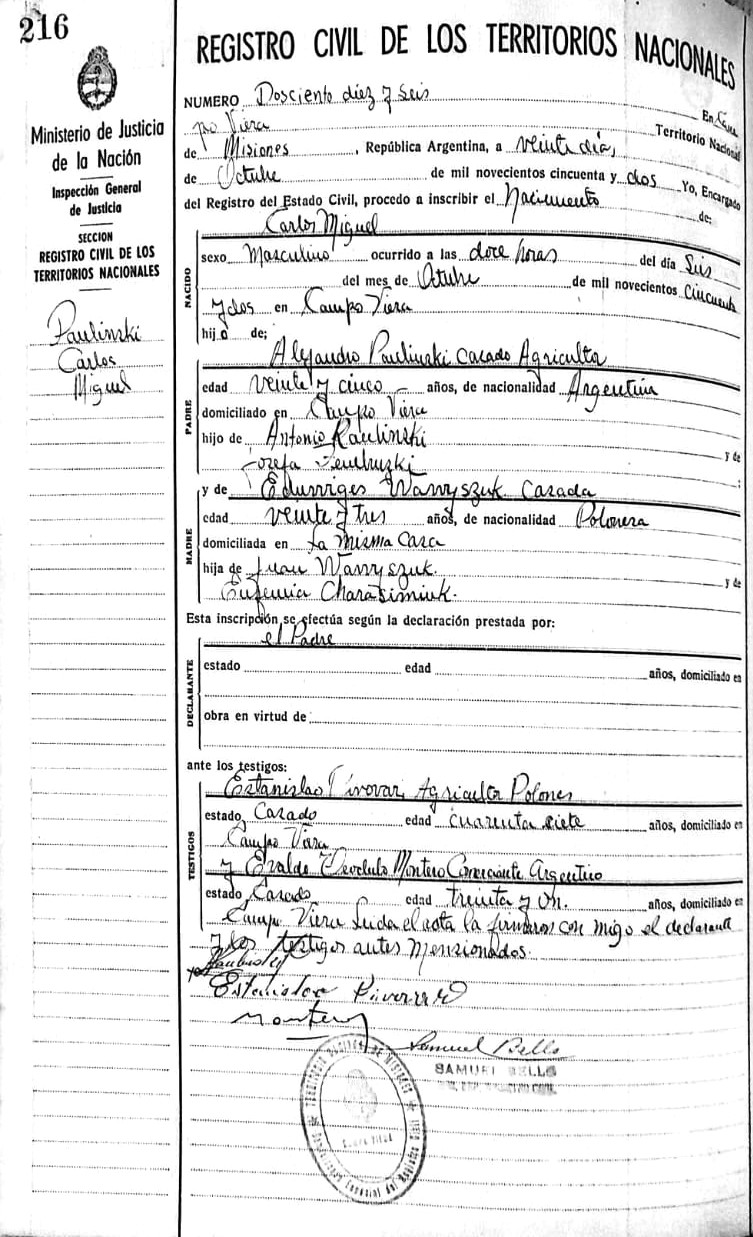 216
Ministerio de Justicia
de la Nación
Inspección General
de Justicia
SECCION
REGISTRO CIVIL DE LOS
TERRITORIOS NACIONALES
Paulinski
Carlos
Miguel
REGISTRO CIVIL DE LOS TERRITORIOS NACIONALES
NUMERO Dosciento diez y Seis En Cam
po Viera Territorio Nacional
de Misiones, República Argentina, a veinte día,
de Octubre de mil novecientos cincuenta y dos Yo, Encargado
del Registro del Estado Civil, procedo a inscribir el Nacimiento de:
NACIDO
Carlos Miguel
sexo Masculino ocurrido a las doce horas del día Seis
del mes de Octubre de mil novecientos Cincuenta
y dos en Campo Viera
hijo de;
PADRE
Alejandro Paulinski Casado Agricultor
edad veinte y cinco años, de nacionalidad Argentina
domiciliado en Campo Viera
hijo de Antonio Paulinski y de
Jozefa :
MADRE
y de Eduvriges Wawryszuk Casada
edad veinte y tres años, de nacionalidad Polonesa
domiciliada en La misma Casa
hija de Juan Wawryszuk. y de
Eugenia
Esta inscripción se efectúa según la declaración prestada por:
DECLARANTE
el Padre
estado edad años, domiciliado en
obra en virtud de
ante los testigos:
TESTIGOS
Estanislao Agricultor Polones
estado Casado edad cuarenta siete años, domiciliado en
Campo Viera
y Evaldo Montero Comerciante Argentino
estado Casado edad treinta y un. años, domiciliado en
Campo Viera Leida el acta la firmaron con migo el declarante
y los testigos antes mensionados.
Estanislao
Montero
Samuel Bello
SAMUEL BELLO